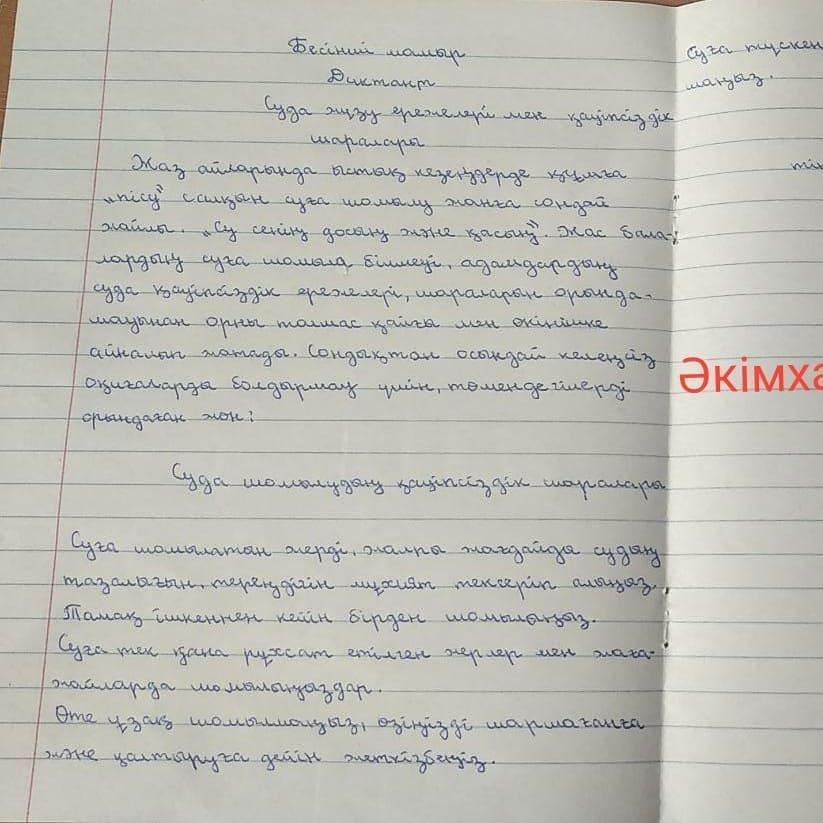 Бесінші мамыр
Диктант
Суда жүзу ережелері мен қауіпсіздік
шаралары
Жаз айларында ыстық кезеңдерде құмға
„пісу“ салқын суға шомылу жанға сондай
жайлы. „Су сенің досың және қасың“. Жас бала-
лардың суға шомыла білмеуі, адамдардың
суда қауіпсіздік ережелері, шараларын орында-
мауынан орны толмас қайғы мен өкінішке
айналып жатады. Сондықтан осындай келеңсіз
оқиғаларды болдырмау үшін, төмендегілерді
орындаған жөн:
Суда шомылудың қауіпсіздік шаралары
Суға шомылатын жерді, жалпы жағдайда судың
тазалығын, тереңдігін мұхият тексеріп алыңыз.
Тамақ ішкеннен кейін бірден шомылыңыз.
Суға тек қана рұхсат етілген жерлер мен жаға-
жайларда шомылыңыздар.
Өте ұзақ шомылмаңыз, өзіңізді шаршағанға
және қалтыруға дейін жеткізбеңіз.
Суға түскен
маңыз.
тік
Әкімха